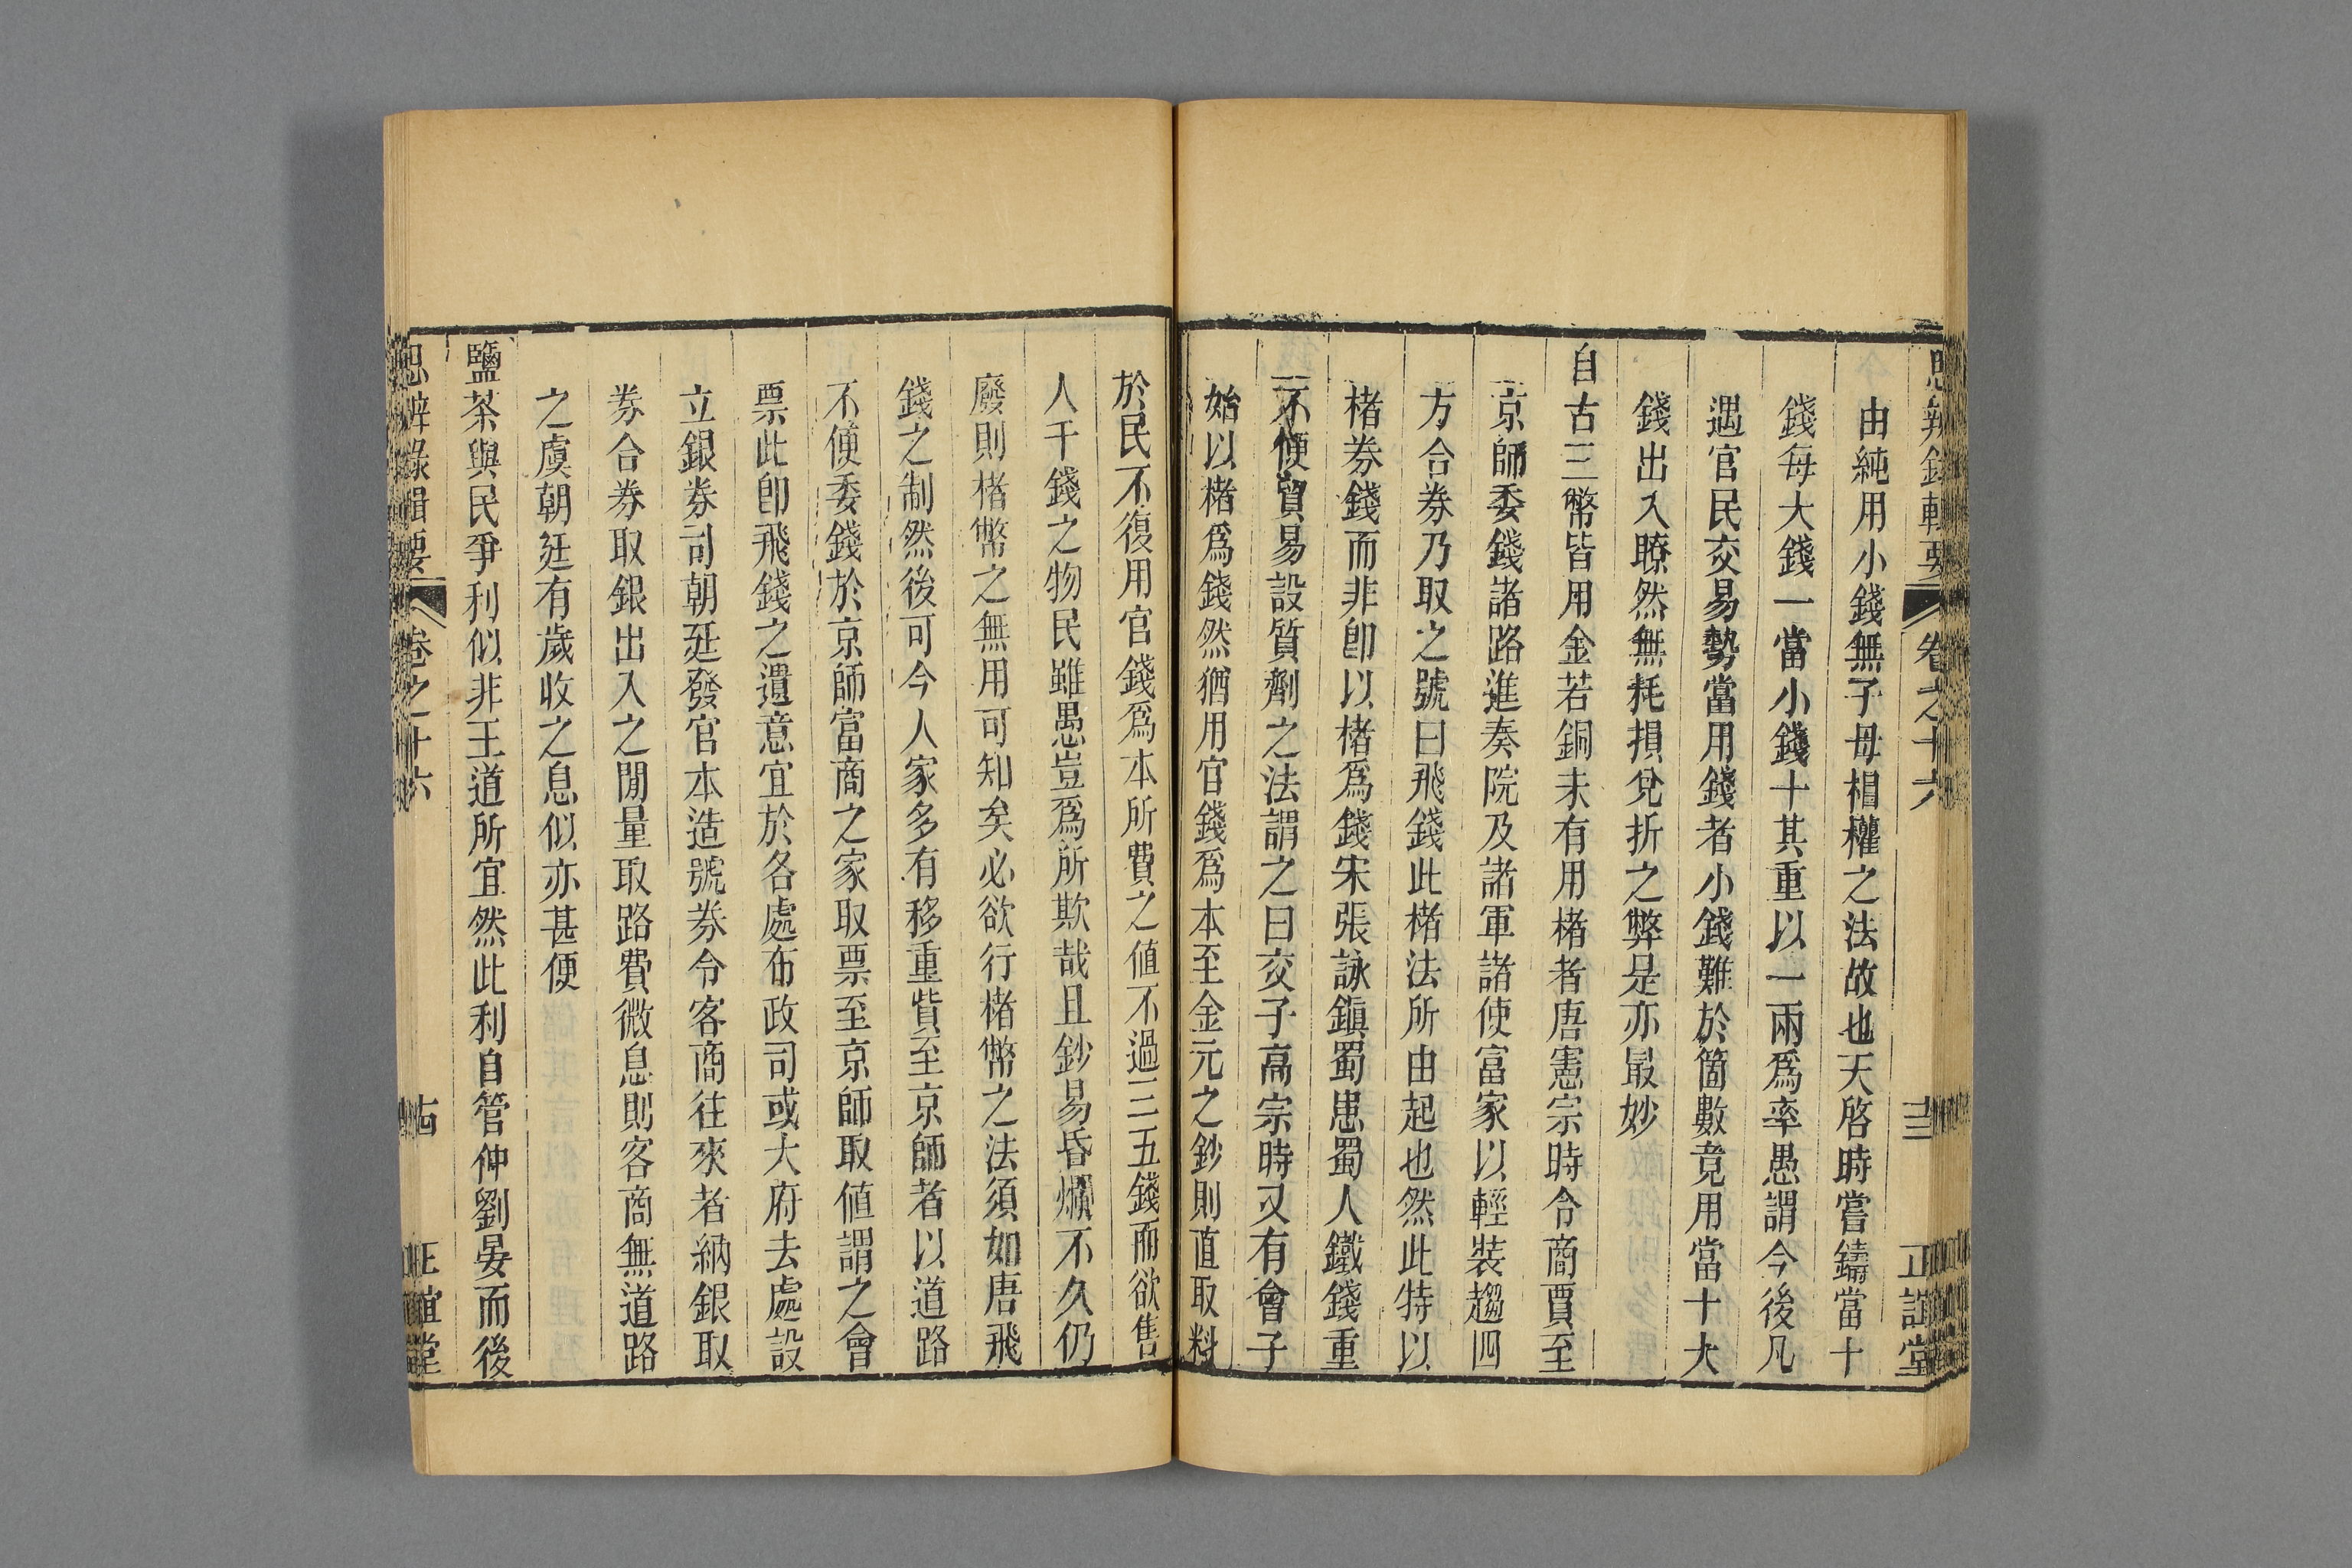 思辨錄輯要 卷之十六 十三 正誼堂
由純用小錢無子母相權之法故也天啓時嘗鑄當十
錢每大錢一當小錢十其重以一兩爲率愚謂今後凡
遇官民交易勢當用錢者小錢難於箇數竟用當十大
錢出入瞭然無耗損兌折之弊是亦最妙
自古三幣皆用金若銅未有用楮者唐憲宗時令商賈至
京師委錢諸路進奏院及諸軍諸使富家以輕裝趨四
方合券乃取之號曰飛錢此楮法所由起也然此特以
楮券錢而非卽以楮爲錢宋張詠鎭蜀患蜀人鐵錢重
不便貿易設質劑之法謂之曰交子高宗時又有會子
始以楮爲錢然猶用官錢爲本至金元之鈔則直取料
於民不復用官錢爲本所費之値不過三五錢而欲售
人千錢之物民雖愚豈爲所欺哉且鈔易昏爛不久仍
廢則楮幣之無用可知矣必欲行楮幣之法須如唐飛
錢之制然後可今人家多有移重貲至京師者以道路
不便委錢於京師富商之家取票至京師取値謂之會
票此卽飛錢之遺意宜於各處布政司或大府去處設
立銀券司朝廷發官本造號券令客商往來者納銀取
券合券取銀出入之閒量取路費微息則客商無道路
之虞朝廷有歲收之息似亦甚便
鹽茶與民爭利似非王道所宜然此利自管仲劉晏而後
思辨錄輯要 卷之十六 十四 正誼堂